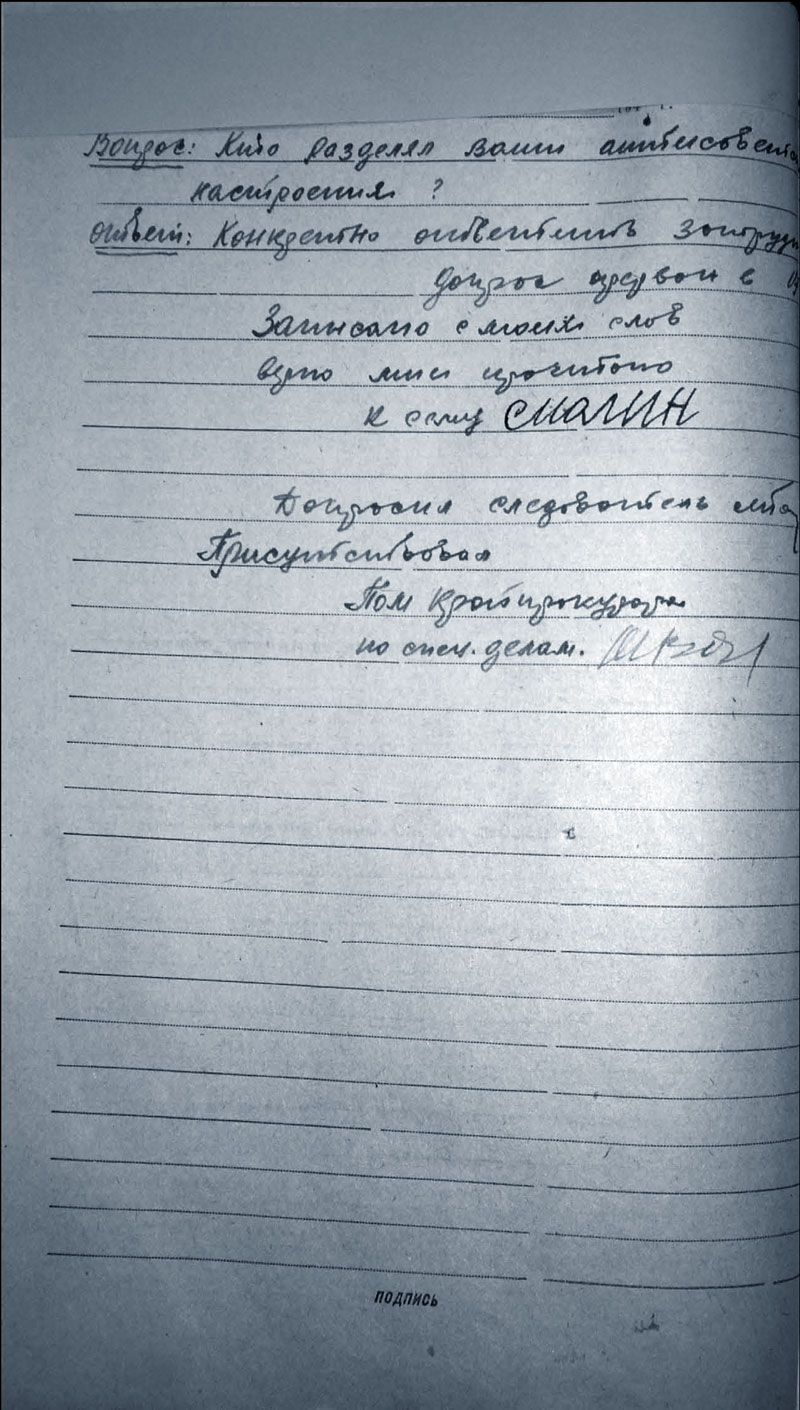 Вопрос: Кто разделял ваши антисовет
настроения ?
Ответ: Конкретно ответить затруд
Допрос прерван в
Записано с моих слов
верно мною прочитано
к сему СМАГИН
Допросил следователь
Присутствовал
Пом Крайпрокурора
по спец. делам.
подпись